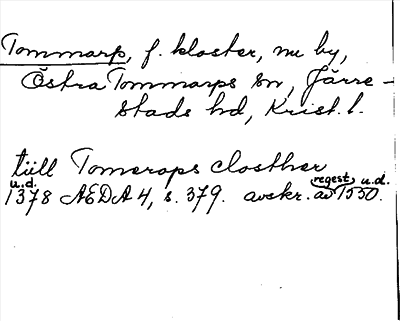 Tommarp, f. kloster, nu by,
Östra Tommarps sn, Järre-
stads hd, Krist. l.
tiill Tomerops closther
u.d. regest u.d.
1378 AEDA 4, s. 379. avskr. av 1550.